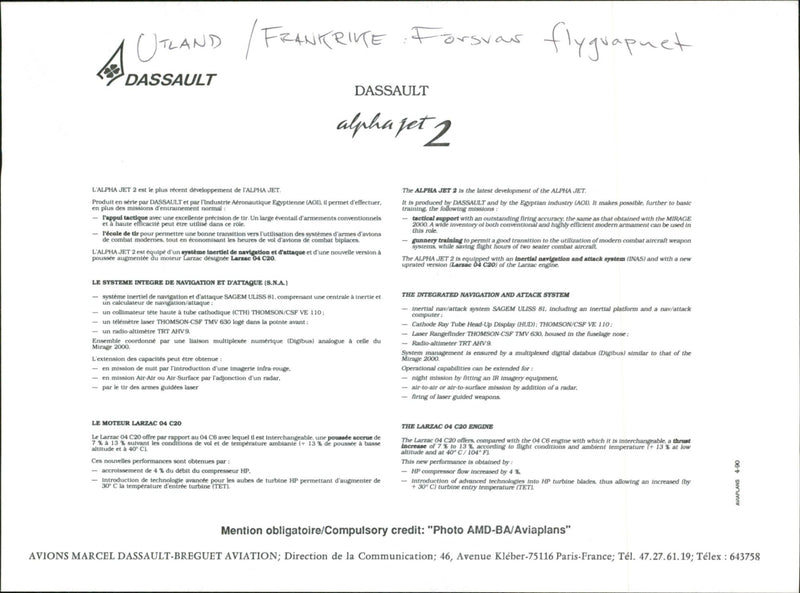 UTLAND / FRANKRIKE : Försvar flygvapnet
DASSAULT
DASSAULT
alpha jet 2
L'ALPHA JET 2 est le plus récent développement de l'ALPHA JET.
Produit en série par DASSAULT et par l'Industrie Aéronautique Egyptienne (AOI), il permet d'effectuer,
en plus des missions d'entrainement normal :
— l'appui tactique avec une excellente précision de tir. Un large éventail d'armements conventionnels
et à haute efficacité peut être utilisé dans ce rôle.
— l'école de tir pour permettre une bonne transition vers l'utilisation des systèmes d'armes d'avions
de combat modernes, tout en économisant les heures de vol d'avions de combat biplaces.
L'ALPHA JET 2 est équipé d'un système inertiel de navigation et d'attaque et d'une nouvelle version à
poussée augmentée du moteur Larzac désignée Larzac 04 C20.
LE SYSTEME INTEGRE DE NAVIGATION ET D'ATTAQUE (S.N.A.)
— système inertiel de navigation et d'attaque SAGEM ULISS 81, comprenant une centrale à inertie et
un calculateur de navigation/attaque ;
— un collimateur tête haute à tube cathodique (CTH) THOMSON/CSF VE 110 ;
— un télémètre laser THOMSON-CSF TMV 630 logé dans la pointe avant ;
— un radio-altimètre TRT AHV9.
Ensemble coordonné par une liaison multiplexée numérique (Digibus) analogue à celle du
Mirage 2000.
L'extension des capacités peut être obtenue :
— en mission de nuit par l'introduction d'une imagerie infra-rouge,
— en mission Air-Air ou Air-Surface par l'adjonction d'un radar,
— par le tir des armes guidées laser
LE MOTEUR LARZAC 04 C20
Le Larzac 04 C20 offre par rapport au 04 C6 avec lequel il est interchangeable, une poussée accrue de
7 % à 13 % suivant les conditions de vol et de température ambiante (+ 13 % de poussée à basse
altitude et à 40° C).
Ces nouvelles performances sont obtenues par :
— accroissement de 4 % du débit du compresseur HP,
— introduction de technologie avancée pour les aubes de turbine HP permettant d'augmenter de
30° C la température d'entrée turbine (TET).
The ALPHA JET 2 is the latest development of the ALPHA JET.
It is produced by DASSAULT and by the Egyptian industry (AOI). It makes possible, further to basic
training, the following missions :
— tactical support with an outstanding firing accuracy, the same as that obtained with the MIRAGE
2000. A wide inventory of both conventional and highly efficient modern armament can be used in
this role.
— gunnery training to permit a good transition to the utilization of modern combat aircraft weapon
systems, while saving flight hours of two seater combat aircraft.
The ALPHA JET 2 is equipped with an inertial navigation and attack system (INAS) and with a new
uprated version (Larzac 04 C20) of the Larzac engine.
THE INTEGRATED NAVIGATION AND ATTACK SYSTEM
— inertial nav/attack system SAGEM ULISS 81, including an inertial platform and a nav/attack
computer ;
— Cathode Ray Tube Head-Up Display (HUD) ; THOMSON/CSF VE 110 ;
— Laser Rangefinder THOMSON-CSF TMV 630, housed in the fuselage nose ;
— Radio-altimeter TRT AHV9.
System management is ensured by a multiplexed digital databus (Digibus) similar to that of the
Mirage 2000.
Operational capabilities can be extended for :
— night mission by fitting an IR imagery equipment,
— air-to-air or air-to-surface mission by addition of a radar,
— firing of laser guided weapons.
THE LARZAC 04 C20 ENGINE
The Larzac 04 C20 offers, compared with the 04 C6 engine with which it is interchangeable, a thrust
increase of 7 % to 13 %, according to flight conditions and ambient temperature (+ 13 % at low
altitude and at 40° C / 104° F).
This new performance is obtained by :
— HP compressor flow increased by 4 %,
— introduction of advanced technologies into HP turbine blades, thus allowing an increased (by
+ 30° C) turbine entry temperature (TET).
AVIAPLANS 4-90
Mention obligatoire/Compulsory credit: "Photo AMD-BA/Aviaplans"
AVIONS MARCEL DASSAULT-BREGUET AVIATION; Direction de la Communication; 46, Avenue Kléber-75116 Paris-France; Tél. 47.27.61.19; Télex : 643758